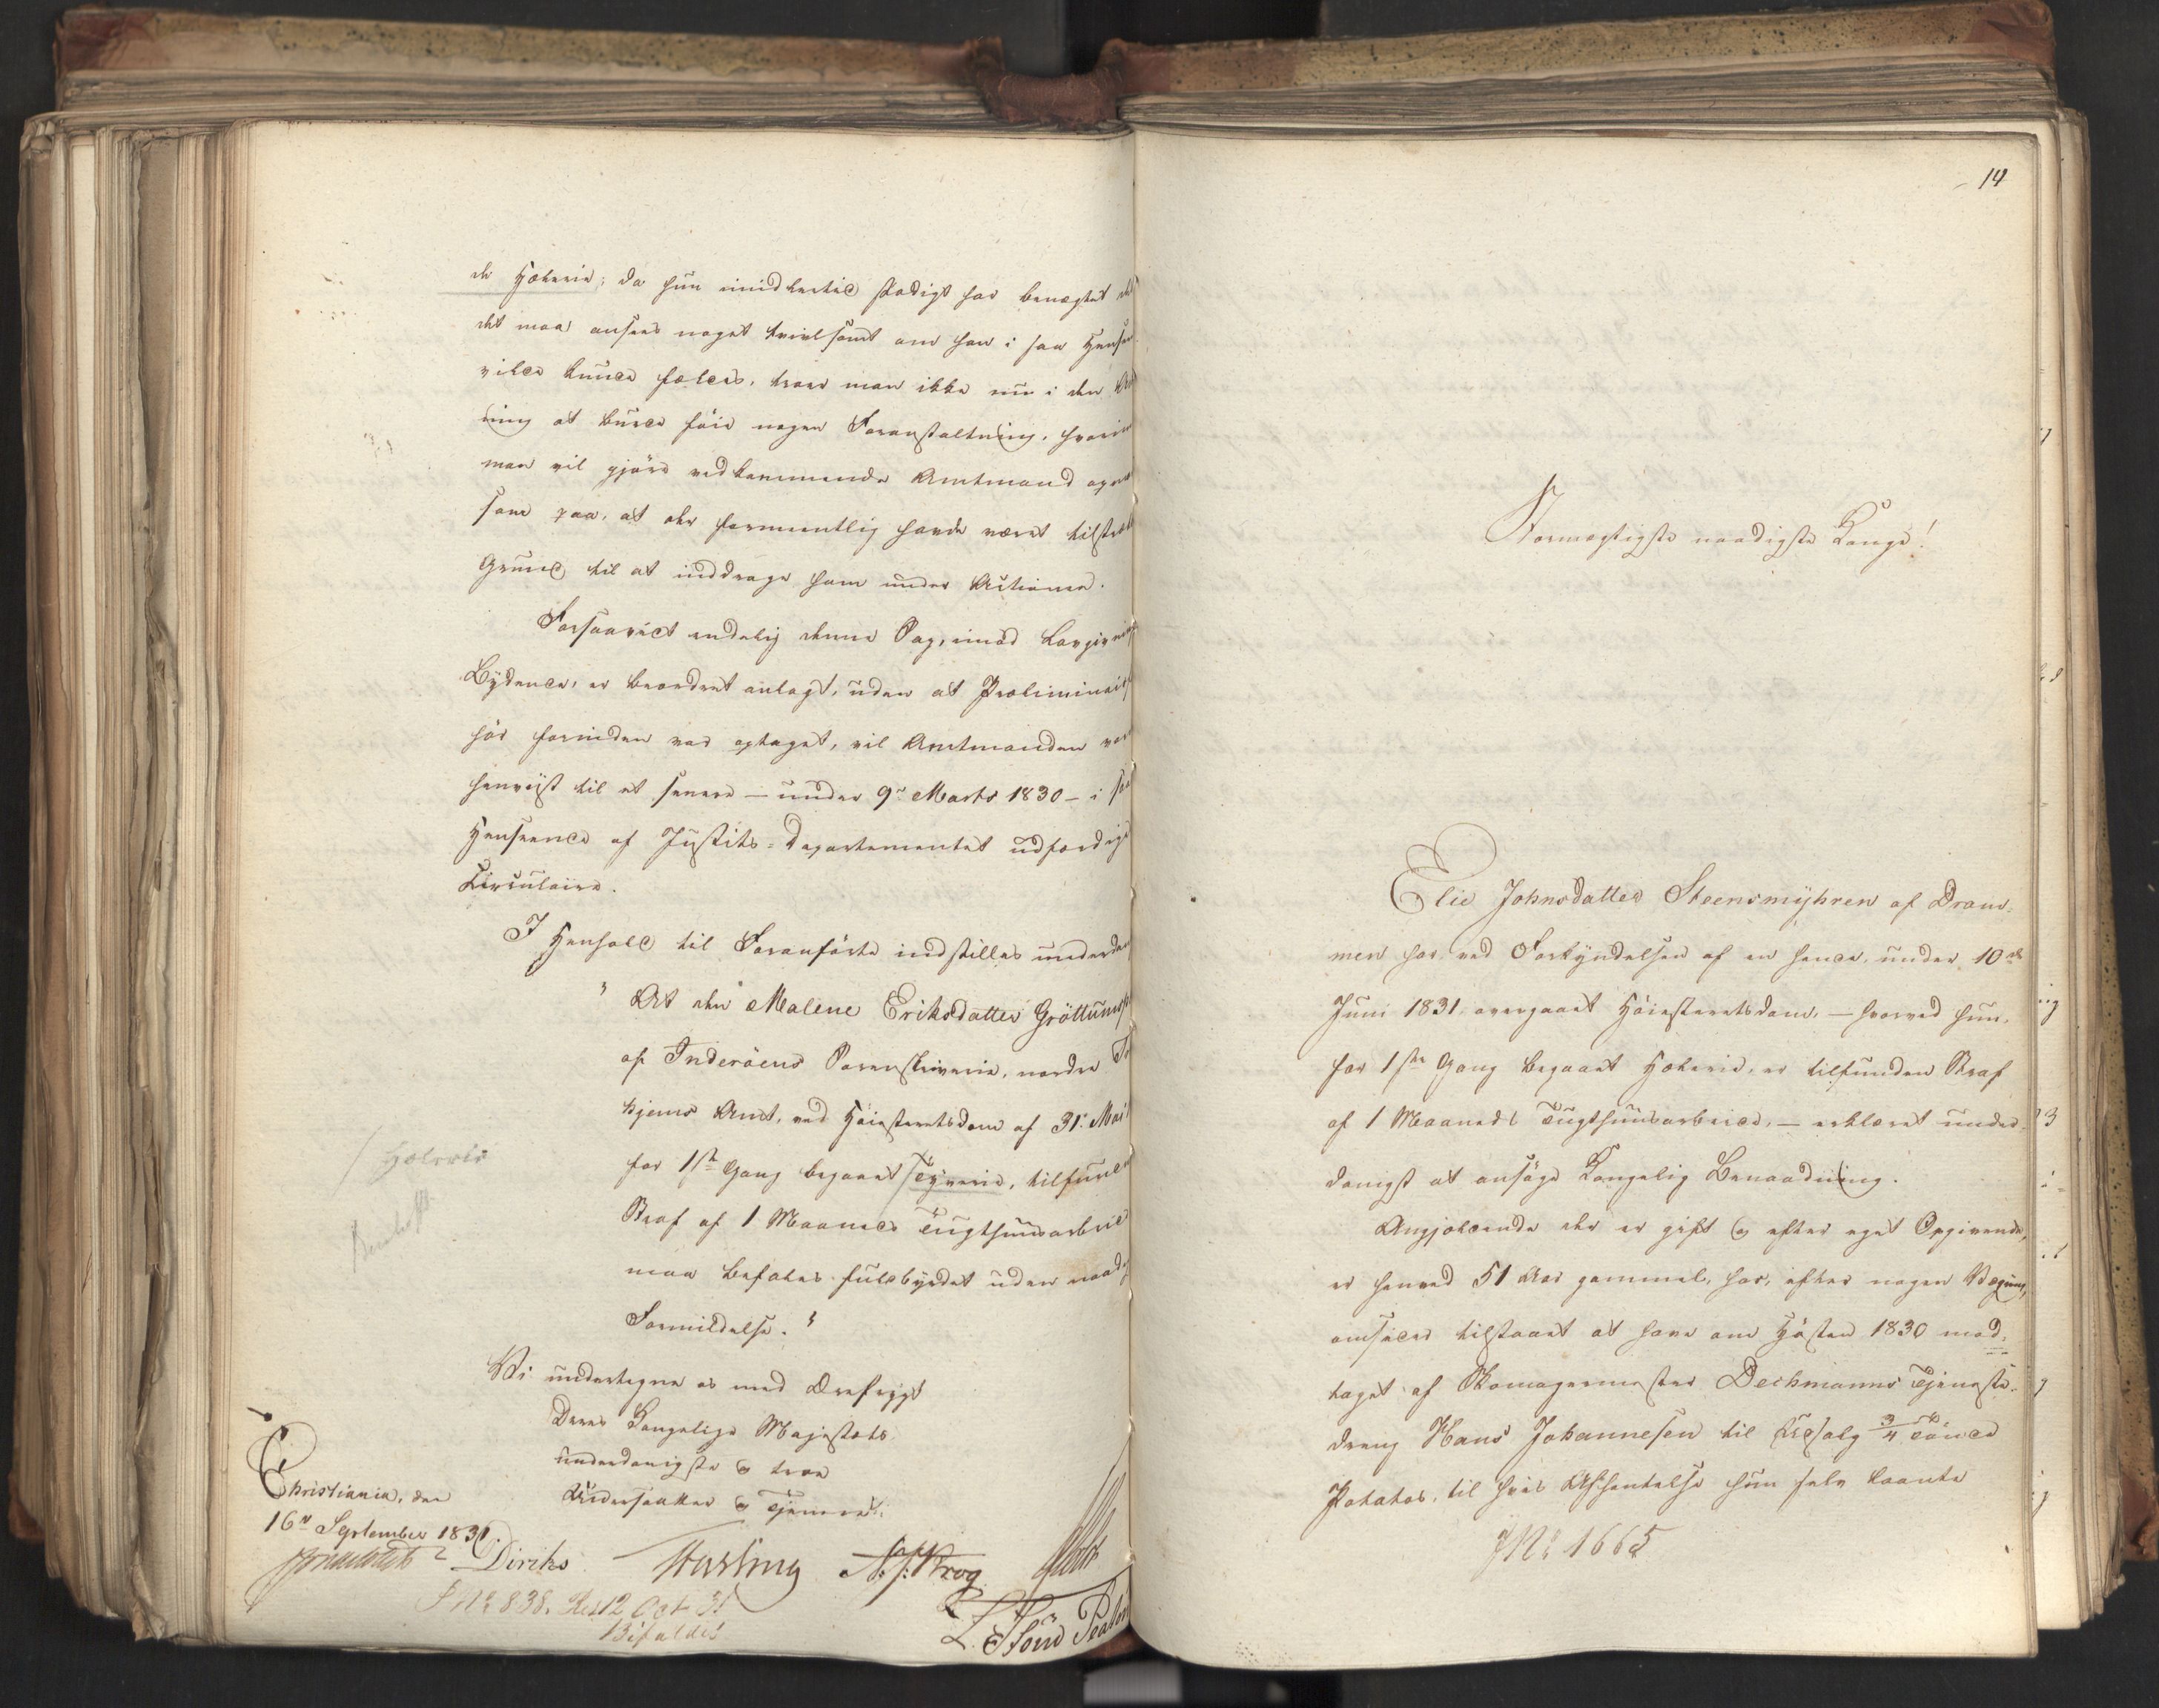 de Hæleri; da hun imidlertid stadigt har benægtet
det maa ansees noget tvivlsomt om han i saa Hense
vilde kunde fældes, troer man ikke nu i den
ning at burde føie nogen Foranstaltning, hvori
man vil gjöre vedkommende Amtmand opm
som paa, at der formeentlig havde været tilstræk
Grund til at inddrage ham under Actionen.
Forsaavidt endelig denne Sag, imod Lovgivn
Bydende, er beordret anlagt, uden at Præliminair
hör forinden var optaget, vil Amtmanden
henviist til et senere — under 9de Marts 1830 — i
Henseende af Justits-Departementet udfærdig
Circulaire.
I Henhold til Foranförte indstilles underda
"At den Malene Eriksdatter Gröttum
af Inderöens Sorenskriverie, nordre
hjems Amt, ved Höiesteretsdom af 31 Mai
for 1ste Gang begaaet / Tyverie, tilfund
Straf af 1 Maaneds Tugthuusarbeid
maa befales fuldbyrdet uden naad
Formildelse."
/ Hæleri
Vi undertegne os med Ærefrygt
Deres Kongelige Majestæts
underdanigste og troe
Undersaatter og Tjenere.
Christiania, den
16de September 1831.
Diriks
N. J. Krog
J No 838. Res 12 Oct 31
Bifaldes
14
Stormægtigste naadigste Konge!
Elie Johnsdatter Steensmyhren af Dram-
men har ved Forkyndelsen af en hende, under 10de
Juni 1831 overgaaet Höiesteretsdom, — hvorved hun,
for 1ste Gang begaaet Hæleri, er tilfunden Straf
af 1 Maaneds Tugthuusarbeide, — erklæret under-
danigst at ansöge Kongelig Benaadning.
Angjældende der er gift og efter eget Opgivende,
er henved 51 Aar gammel, har, efter nogen Vægring,
omsider tilstaaet at have om Hösten 1830 mod-
taget af Skomagermester Dechmanns Tjeneste-
dreng Hans Johannesen til Udsalg 3/4 Tönde
Potatos, til hvis Afhentelse hun selv laante
J No 1665